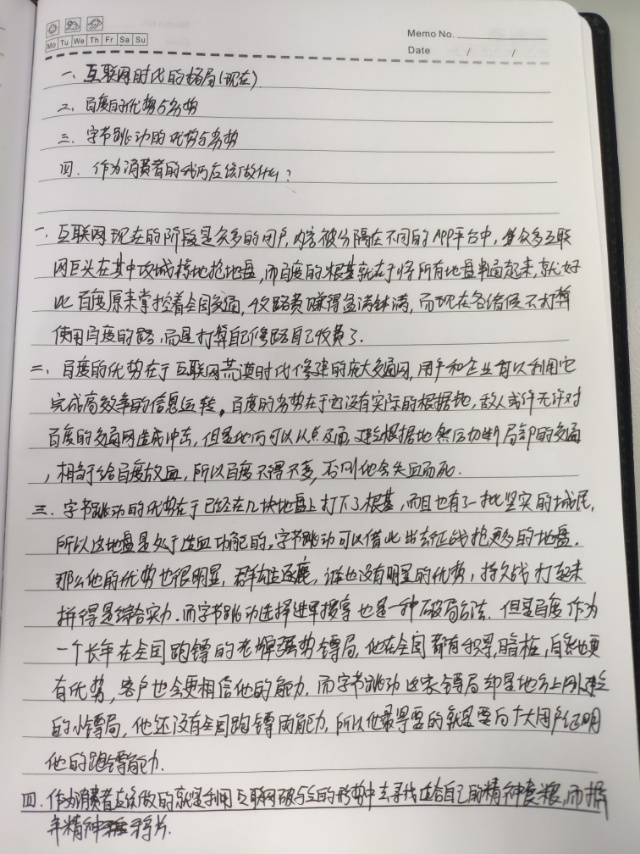 Memo No.
Mo Tu We Th Fr Sa Su
Date / /
一、互联网时代的格局(现在)
二、百度的优势与劣势
三、字节跳动的优势与劣势
四、作为消费者的我们应该做什么?
一、互联网现在的阶段是众多的用户,内容被分隔在不同的APP平台中,众多互联
网巨头在其中攻城掠地抢地盘,而百度的根基就在于将所有地盘串通起来,就好
比百度原来掌控着全国交通,收路费赚得盆满钵满,而现在各诸侯不打算
使用百度的路,而是打算自己修路自己收费了.
二、百度的优势在于互联网荒漠时代修建的庞大交通网,用户和企业可以利用它
完成高效率的信息运转。百度的劣势在于它没有实际的根据地,敌人或许无法对
百度的交通网造成冲击,但是他们可以以点及面,建立根据地然后切断局部的交通
,相当于给百度放血,所以百度不得不变,否则他会失血而死.
三、字节跳动的优势在于已经在几块地盘上打下了根基,而且也有了一批坚实的城民,
所以这地盘是处于造血功能的,字节跳动可以借此出去征战抢更多的地盘,
那么他的劣势也很明显,群雄逐鹿,谁也没有明显的优势,持久战打起来
拼得是综合实力.而字节跳动选择进军搜索也是一种破局办法.但是百度作为
一个长年在全国跑镖的老牌强势镖局,他在全国都有积累,暗桩,自然也更
有优势,客户也会更相信他的能力.而字节跳动这家镖局却是地方上刚建立
的小镖局,他还没有全国跑镖的能力,所以他最需要的就是要向广大用户证明
他的跑镖能力.
四、作为消费者应该做的就是利用互联网破与立的形势中去寻找适合自己的精神食粮,而摒
弃精神鸦片.